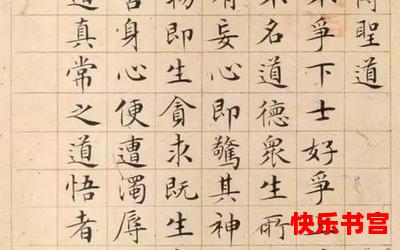 聖道
爭下士好爭
名道德衆生所
有妄心即驚其神
物即生貪求既生
身心便遭濁辱
真常之道悟者
快乐书宫